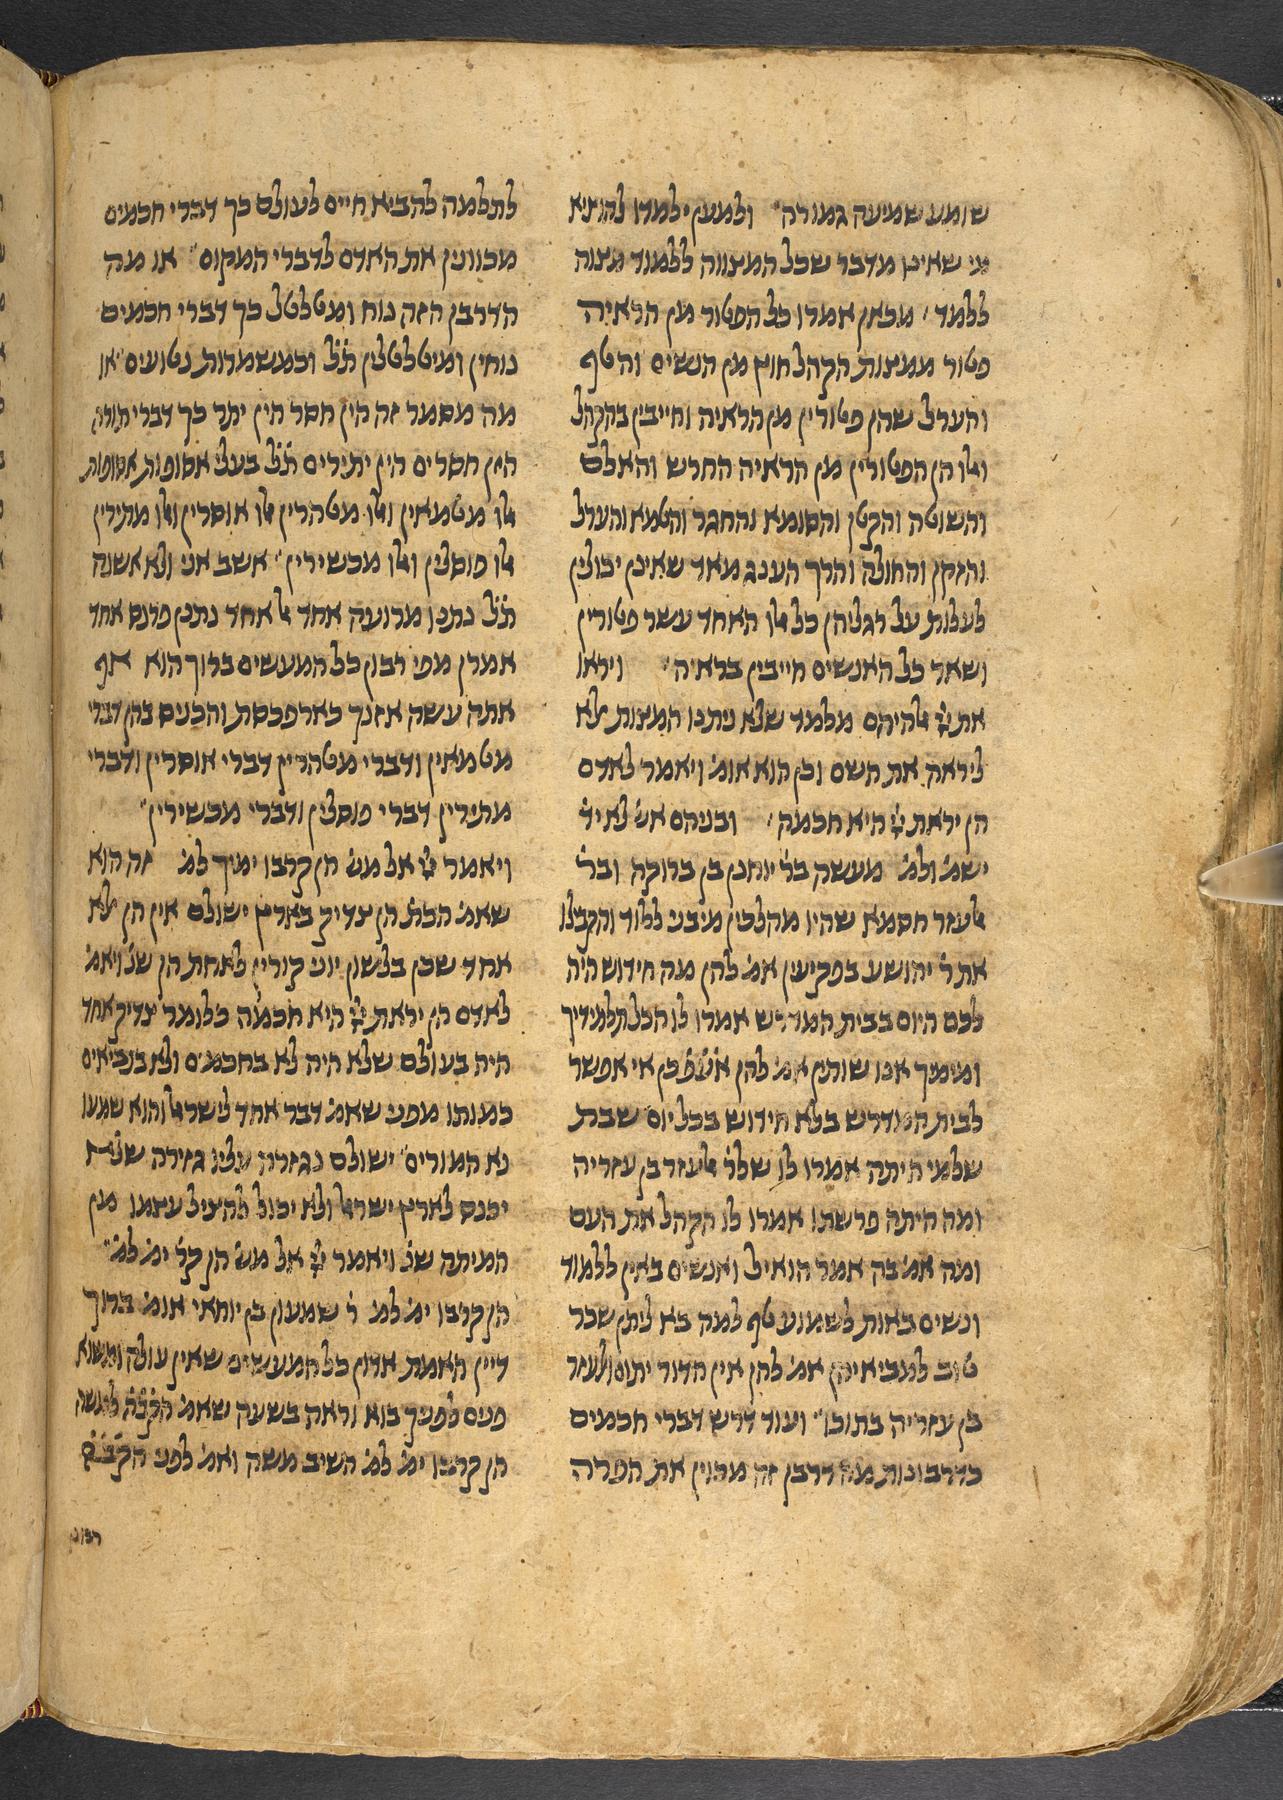 שומע שמיעה גמורה״ ולמען ילמדו להוציא
מי שאינו מדבר שכל המצווה ללמוד מצוה
ללמד׳ מכאן אמרו כל הפטור מן הראיה
פטור ממצות הקהל חוץ מן הנשים והטף
והערל שהן פטורין מן הראיה וחייבין בהקהל
ואלו הן הפטורין מן הראיה החרש והאלם
והשוטה והקטן והסומא והחגר והטמא והערל
והזקן והחולה והרך הענג מאד שאינן יכולין
לעלות על רגליהן כל אלו האחד עשר פטורין
ושאר כל האנשים חייבין בראיה׳ ויראו
את יי׳ אלהיהם מלמד שלא ניתנו המצות אלא
ליראה את השם וכן הוא אומ׳ ויאמר לאדם
הן יראת יי׳ היא חכמה׳ ובניהם אש׳ לא יד׳
ישמ׳ ולמ׳ מעשה בר׳ יוחנן בן ברוקה ובר׳
אלעזר חסמא שהיו מהלכין מיבני ללוד והקבלו
את ר׳ יהושע בפקיעין אמ׳ להן מה חידוש היה
לכם היום בבית המדרש אמרו לו הכל תלמידיך
ומימיך אנו שותין אמ׳ להן אעפ״כ אי אפשר
לבית המדרש בלא חידוש בכל יום שבת
שלמי היתה אמרו לו שלר׳ אלעזר בן עזריה
ומה היתה פרשתו אמרו לו הקהל את העם
ומה אמ׳ בה אמר הואיל ואנשים באין ללמוד
ונשים באות לשמוע טף למה בא ליתן שכר
טוב למביאיהן אמ׳ להן אין הדור יתום ולעזר
בן עזריה בתוכו״ ועוד דרש דברי חכמים
כדרבונות מה דרבן זה מכוין את הפרה
לתלמה להביא חיים לעולם כך דברי חכמים
מכוונין את האדם לדברי המקום״ או מה
הדרבן הזה נוח ומטלטל כך דברי חכמים
נוחין ומיטלטלין ת״ל וכמשמרות נטועים״ או
מה מסמר זה הין חסר הין יתר כך דברי תורה
הין חסרים הין יתירים ת״ל בעלי אסופות אסופות
אלו מטמאין ואלו מטהרין אלו אוסרין ואלו מתירין
אלו פוסלין ואלו מכשירין״ אשב אני ולא אשנה
ת״ל נתנו מרועה אחד אל אחד נתנן פרנס אחד
אמרן מפי רבון כל המעשים ברוך הוא אף
אתה עשה אזנך כארפכסת והכניס בהן דברי
מטמאין ודברי מטהרין דברי אוסרין ודברי
מתירין דברי פוסלין ודברי מכשירין״
ויאמר יי׳ אל מש׳ הן קרבו ימיך למ׳ זה הוא
שאמ׳ הכת׳ הן צדיק בארץ ישולם אין הן אלא
אחד שכן בלשון יוני קורין לאחת הן שנ׳ ויאמ׳
לאדם הן יראת יי׳ היא חכמה כלומר צדיק אחד
היה בעולם שלא היה לא בחכמים ולא בנביאים
כמותו מפני שאמ׳ דבר אחד לישראל והוא שמעו
נא המורים״ ישולם נגזרה עליו גזירה שלא
יכנס לארץ ישראל ולא יכול להציל עצמו מן
המיתה שנ׳ ויאמר יי׳ אל מש׳ הן קר׳ ימ׳ למ׳״
הן קרבו ימ׳ למ׳ ר׳ שמעון בן יוחאי אומ׳ ברוך
דיין האמת אדון כל המעשים שאין עולה ומשוא
פנים לפניך בוא וראה בשעה שאמ׳ הקב״ה למשה
הן קרבו ימ׳ למ׳ השיב משה ואמ׳ לפני הקב״ה
רבונו